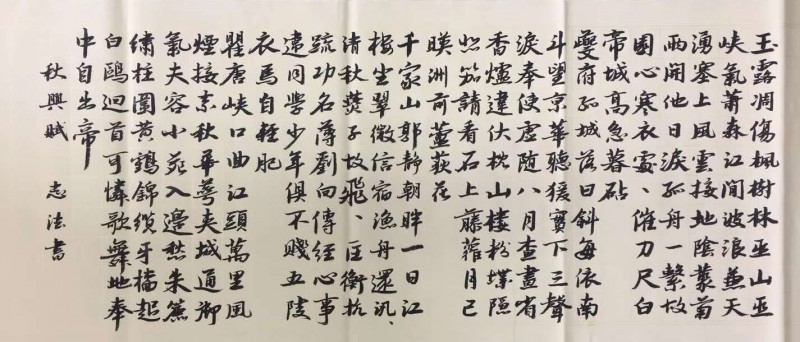 玉露凋傷楓樹林巫山巫
峽氣蕭森江間波浪兼天
湧塞上風雲接地陰叢菊
兩開他日淚孤舟一繫故
園心寒衣處、催刀尺白
帝城高急暮砧
夔府孤城落日斜每依南
斗望京華聽猿實下三聲
淚奉使虛隨八月查畫省
香爐違伏枕山樓粉堞隱
悲笳請看石上藤蘿月已
暎洲前蘆荻花
千家山郭靜朝暉一日江
樓坐翠微信宿漁舟還汎、
清秋燕子故飛、匡衡抗
疏功名薄劉向傳經心事
違同學少年俱不賤五陵
衣馬自輕肥
瞿唐峽口曲江頭萬里風
煙接素秋華萼夾城通御
氣夫容小苑入邊愁朱簾
繡柱圍黃鶴錦纜牙檣起
白鷗迴首可憐歌舞地秦
中自古帝
秋興賦 志法書